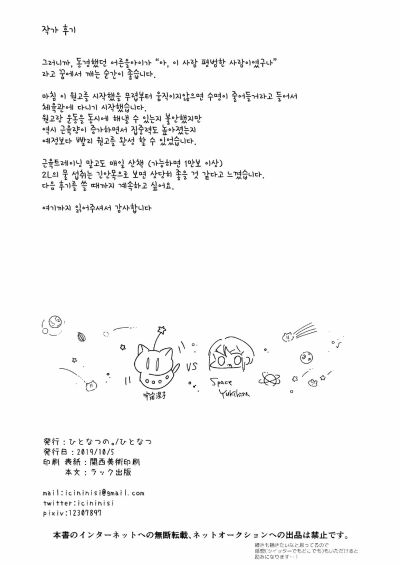 작가 후기
그러니까, 동경했던 어른들아이가 "아, 이 사람 평범한 사람이였구나"
라고 꿈에서 깨는 순간이 좋습니다.
마침 이 원고를 시작했을 무렵부터 움직이지않으면 수명이 줄어들거라고 들어서
체육관에 다니기 시작했습니다.
원고랑 운동을 동시에 해낼 수 있는지 불안했지만
역시 근육량이 증가하면서 집중력도 높아졌는지
예정보다 빨리 원고를 완성 할 수 있었습니다.
근육트레이닝 말고도 매일 산책 (가능하면 1만보 이상)
2L의 물 섭취는 긴안목으로 보면 상당히 좋을 것 같다고 느꼈습니다.
다음 후기를 쓸 때까지 계속하고 싶어요.
여기까지 읽어주셔서 감사합니다
VS
Space
発行：ひとなつの。/ひとなつ
発行日：2019/10/5
印刷 表紙：関西美術印刷
本文：ラック出版
mail:icininisi@gmail.com
twitter:icininisi
pixiv:12307897
本書のインターネットへの無断転載、ネットオークションへの出品は禁止です。
続きも描きたいなと思ってるので
感想(ツイッターでもどこでも)もいただけると
励みになります…！